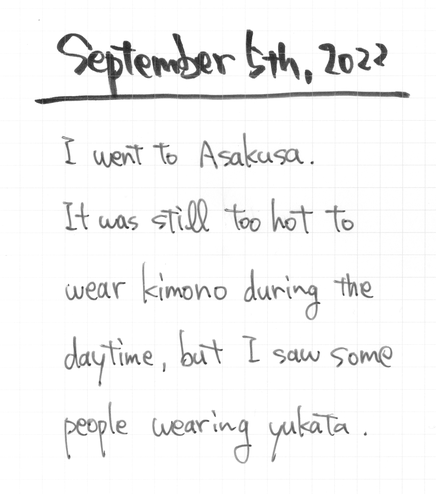 September 5th, 2022
I went to Asakusa.
It was still too hot to
wear kimono during the
daytime, but I saw some
people wearing yukata.